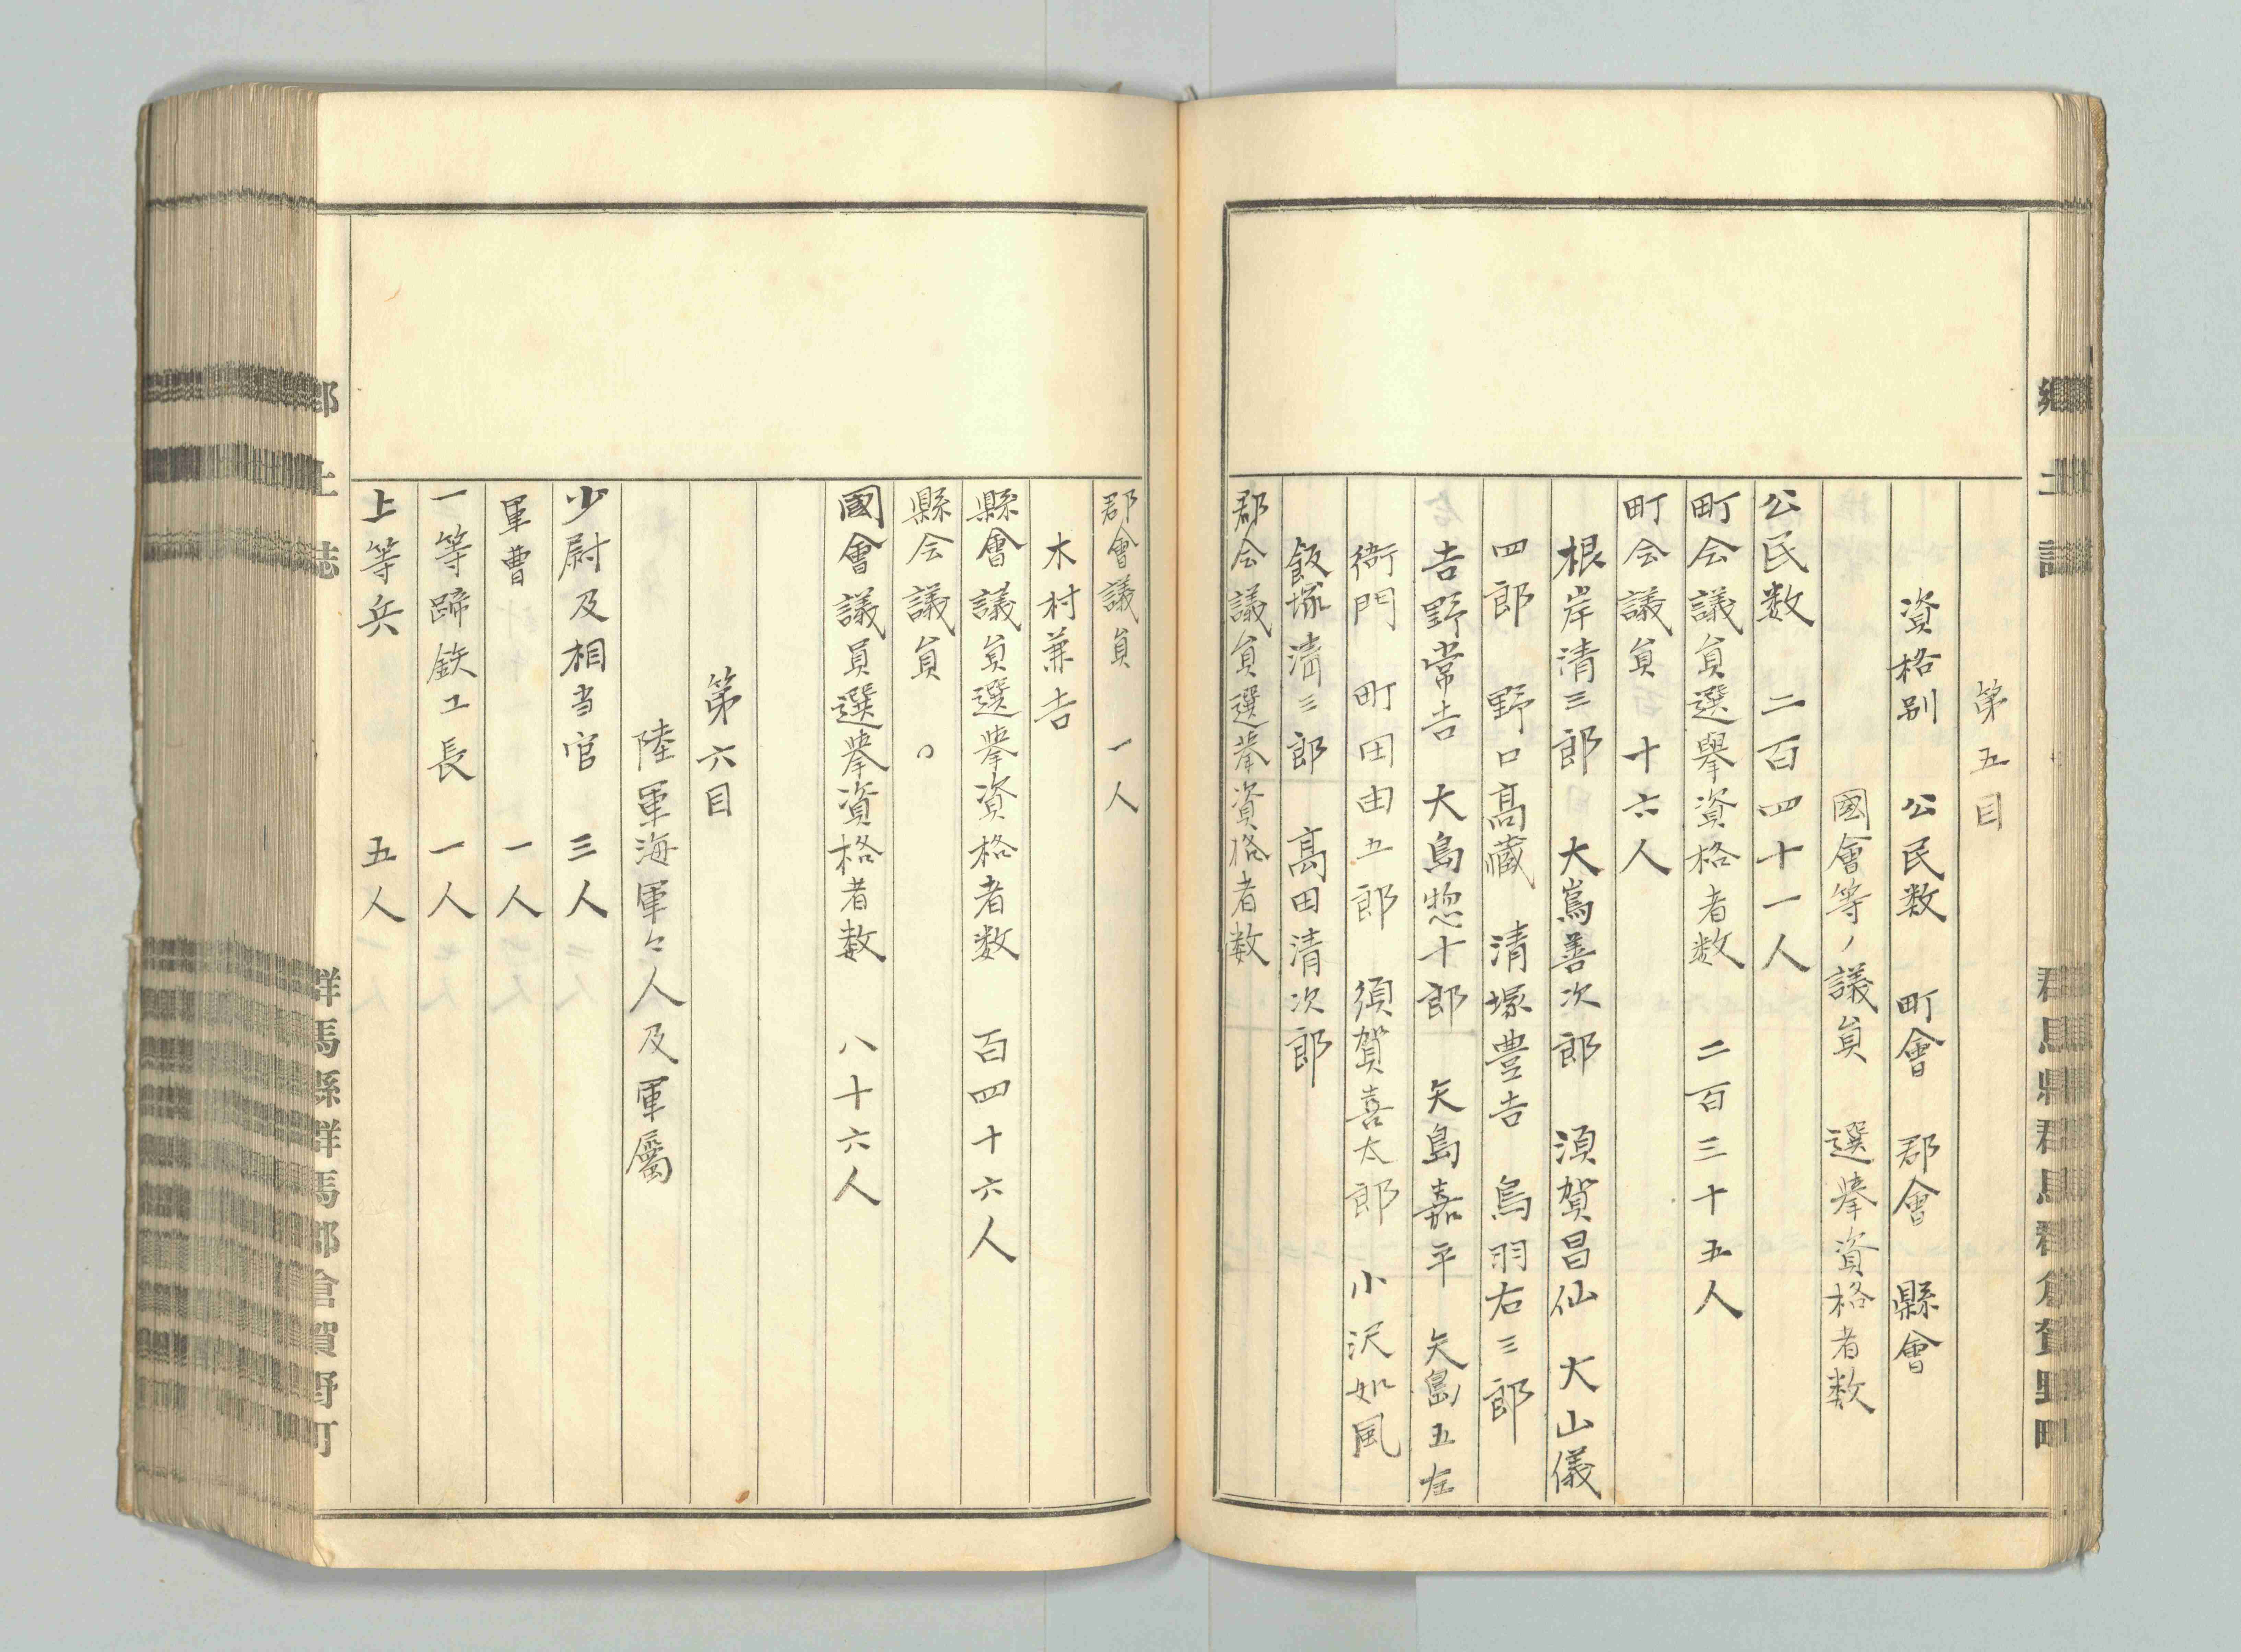 第五目
資格別　公民数　町會　郡會　縣會
國會等ノ議員　選挙資格者数
公民数　二百四十一人
町会議員選舉資格者数　二百三十五人
町会議員　十六人
根岸清三郎　大嶌善次郎　須賀昌仙　大山儀
四郎　野口髙藏　清塚豊吉　鳥羽右三郎
吉野常吉　大島惣十郎　矢島嘉平　矢島五左
衛門　町田由五郎　須賀喜太郎　小沢如風
飯塚清三郎　髙田清次郎
郡会議員選挙資格者数
郡會議員　一人
木村兼吉
縣會議員選挙資格者数　百四十六人
縣会議員　〇
國會議員選挙資格者数　八十六人
第六目
陸軍海軍々人及軍屬
少尉及相当官　三人
軍曹　一人
一等蹄鉄工長　一人
上等兵　五人
郷土誌
群馬縣群馬郡倉賀野町